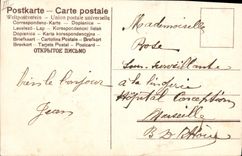 Postkarte - Carte postale
Weltpostverein - Union postale universelle
Correspondenz-Karte - Dopisnica
Levelező-Lap - Korespondenční lístek
Dopisnice - Karta korespondencyjna
Briefkaart - Cartolina Postale - Brevkort
Brefkort - Tarjeta Postal - Dopisnica
ОТКРЫТОЕ ПИСЬМО
bien le bonjour
Jean
Mademoiselle
Rose
Sous-surveillante
à la lingerie
Hôpital Conception
Marseille
B D Rhône